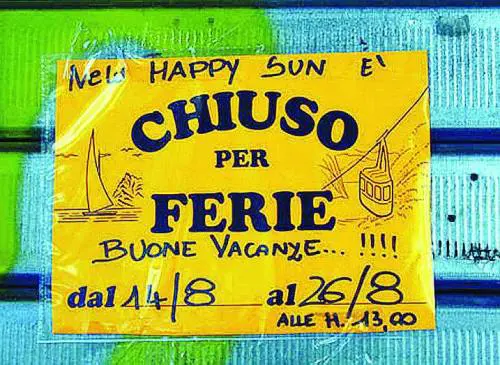 New HAPPY SUN È
CHIUSO
PER
FERIE
BUONE VACANZE... !!!!
dal 14/8 al 26/8
ALLE H. 13,00